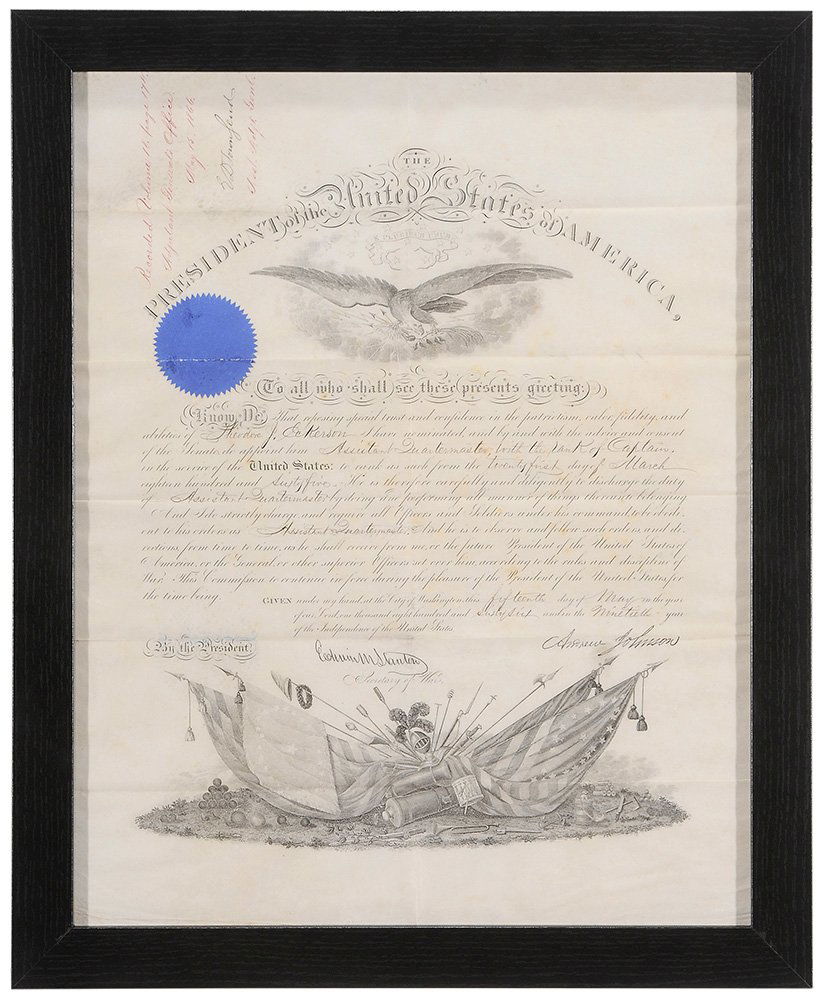 Recorded Volume 11, page 17
Adjutant General's Office
May 15, 1866.
E. D. Townsend
Asst. Adjt. Genl.
THE
PRESIDENT of the United States of AMERICA,
E PLURIBUS UNUM
To all who shall see these presents greeting:
Know Ye, That reposing special trust and confidence in the patriotism, valor, fidelity, and
abilities of Theodore J. Eckerson I have nominated, and by and with the advice and consent
of the Senate, do appoint him Assistant Quartermaster, with the rank of Captain,
in the service of the United States: to rank as such from the twenty first day of March
eighteen hundred and sixty five. He is therefore carefully and diligently to discharge the duty
of Assistant Quartermaster by doing and performing all manner of things thereunto belonging.
And I do strictly charge, and require all Officers and Soldiers under his command to be obedi-
ent to his orders as Assistant Quartermaster. And he is to observe and follow such orders, and di-
rections, from time to time, as he shall receive from me, or the future President of the United States of
America, or the General, or other superior Officers set over him, according to the rules and discipline of
War. This Commission to continue in force during the pleasure of the President of the United States, for
the time being.
GIVEN under my hand, at the City of Washington, this fifteenth day of May in the year
of our Lord, one thousand eight hundred and sixty six and in the Ninetieth year
of the Independence of the United States
By the President,
Andrew Johnson
Edwin M Stanton
Secretary of War.